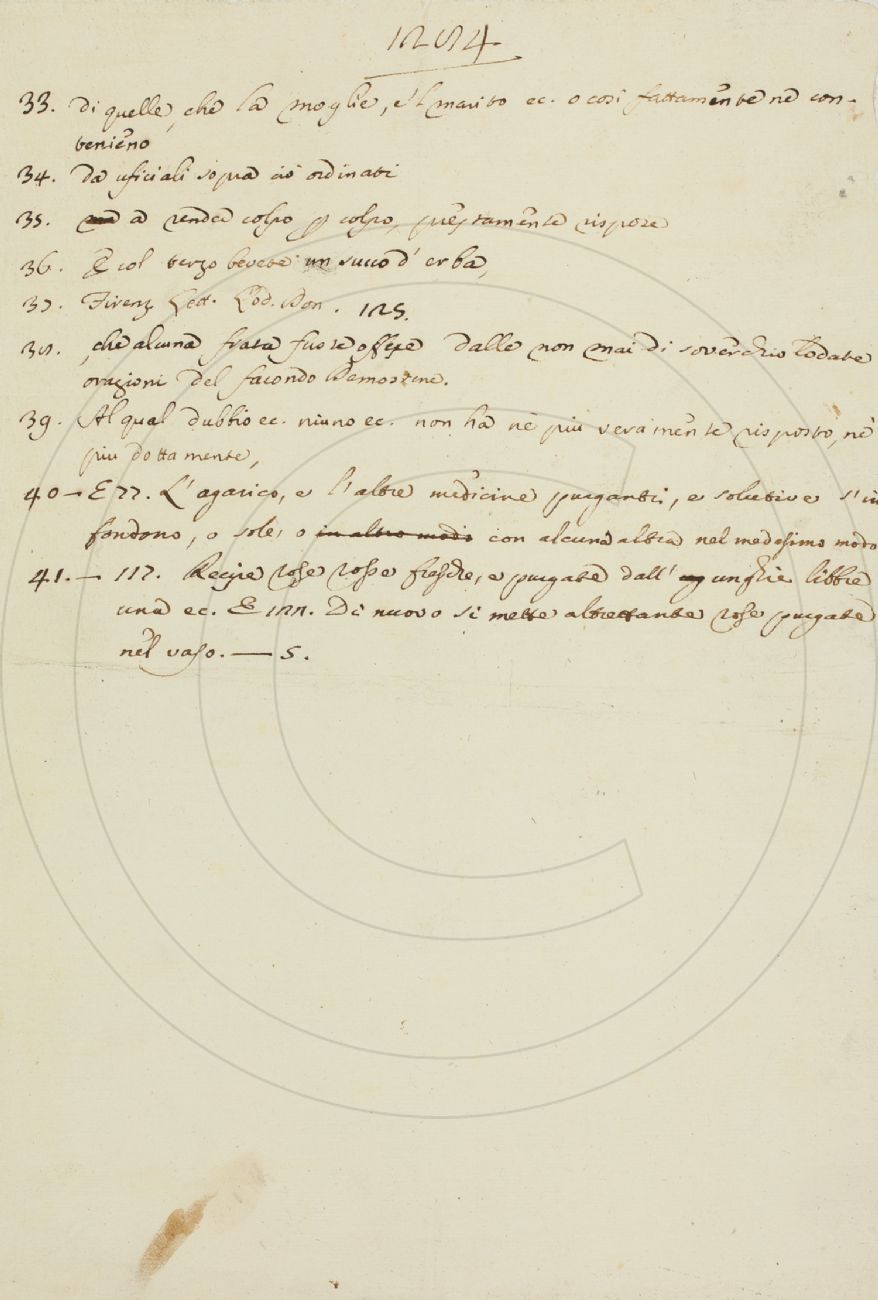 1284.
33. di quelle, che la moglie, e 'l marito ec. o così fattamente ne con-
tenieno
34. da uficiali sopra ciò ordinati
35. a render colpo p colpo, prestamente rispose
36. E col terzo bevete un succo d' erba,
37. Firenz. Lett. Lod. Don. 125.
38. che alcuna fiata fuste offese dalle non mai di soverchio lodate
orazioni del facondo Demostene.
39. Al qual dubbio ec. niuno ec. non ha nè più veramente risposto, nè
più dottamente,
40 — E 77. L' agarico, e l' altre medicine purganti, e solutive s' in
fondono, o sole, o in altro modo con alcuna altra nel medesimo modo
41. — 117. Recipe rose rosse fresche, e purgate dall' unghie libbre
una ec. E 122. Di nuovo si mette altrettante rose purgate
nel vaso. — 5.